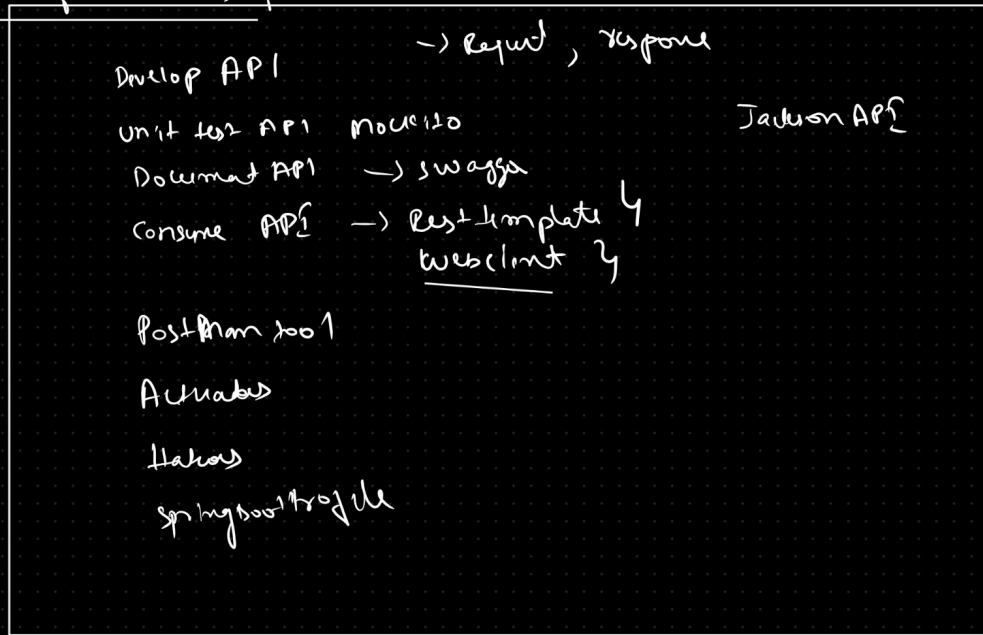 Develop API → Request, response
Unit test API Mockito
Jackson API
Document API → swagger
Consume API → Rest template
webclient
Postman tool
Actuators
Hateoas
springboot profile